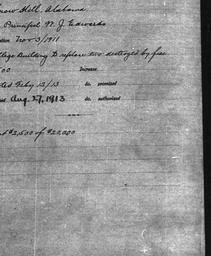 now Hill, Alabama.
Principal W. J. Edwards
Nov 3/1911
llege Building to replace two destroyed by fire
00 Increase
ted Feby 13/13 do. promised
Aug. 27, 1913 do. authorized
d $2,500 of $20,000